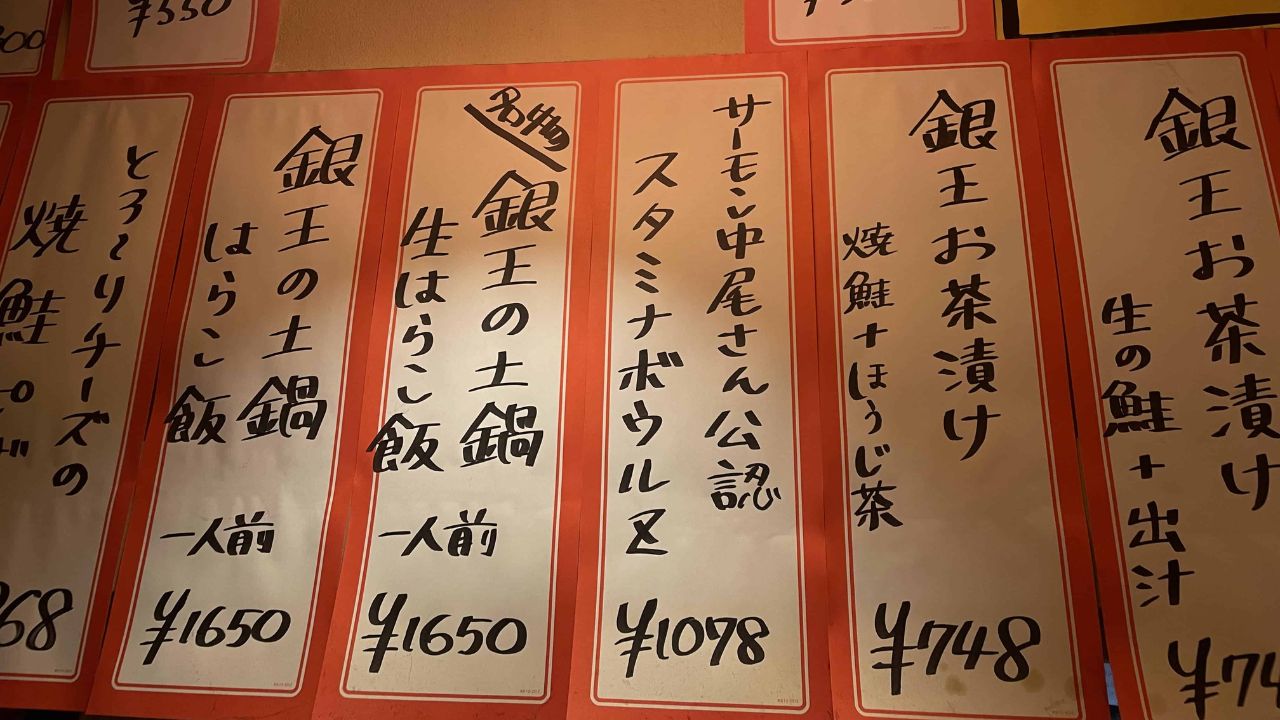 ¥550
銀王お茶漬け
生の鮭+出汁
銀王お茶漬け
焼鮭+ほうじ茶
¥748
サーモン中尾さん公認
スタミナボウルZ
¥1078
銀王の土鍋
生はらこ飯
一人前
¥1650
銀王の土鍋
はらこ飯
一人前
¥1650
とろ~りチーズの
焼鮭